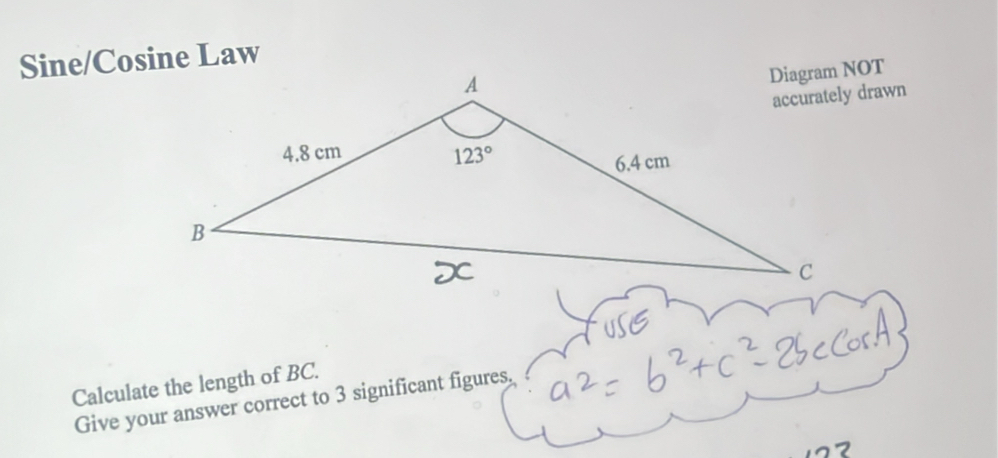 Sine/Cosine Law
Diagram NOT
accurately drawn
A
4.8 cm
123°
6.4 cm
B
x
C
USE
a2 = b²+c²-2bcCosA
Calculate the length of BC.
Give your answer correct to 3 significant figures.